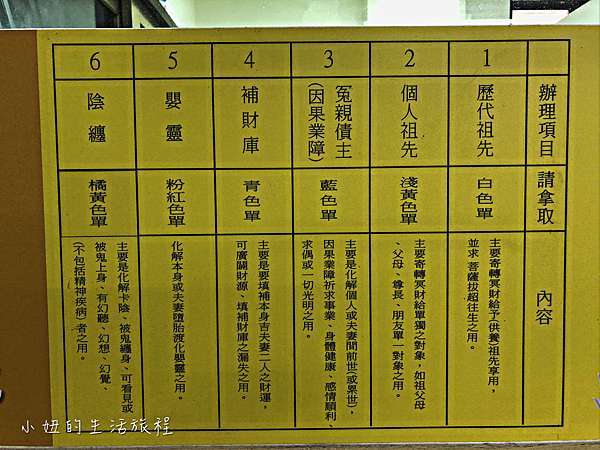 辦理項目
請拿取
內容
1
歷代祖先
白色單
主要寄轉冥財給予(供養)祖先享用，
並求 菩薩拔超往生之用。
2
個人祖先
淺黃色單
主要寄轉冥財給單獨之對象，如祖父母
、父母、尊長、朋友單一對象之用。
3
冤親債主
(因果業障)
藍色單
主要是化解個人或夫妻間前世(或累世)，
因果業障祈求事業、身體健康、感情順利、
求偶或一切光明之用。
4
補財庫
青色單
主要是要填補本身吉夫妻二人之財運，
可廣闢財源、填補財庫之漏失之用。
5
嬰靈
粉紅色單
化解本身或夫妻墮胎渡化嬰靈之用。
6
陰纏
橘黃色單
主要是化解卡陰、被鬼纏身、可看見或
被鬼上身、有幻聽、幻想、幻覺、
(不包括精神疾病)者之用。
小妞的生活旅程